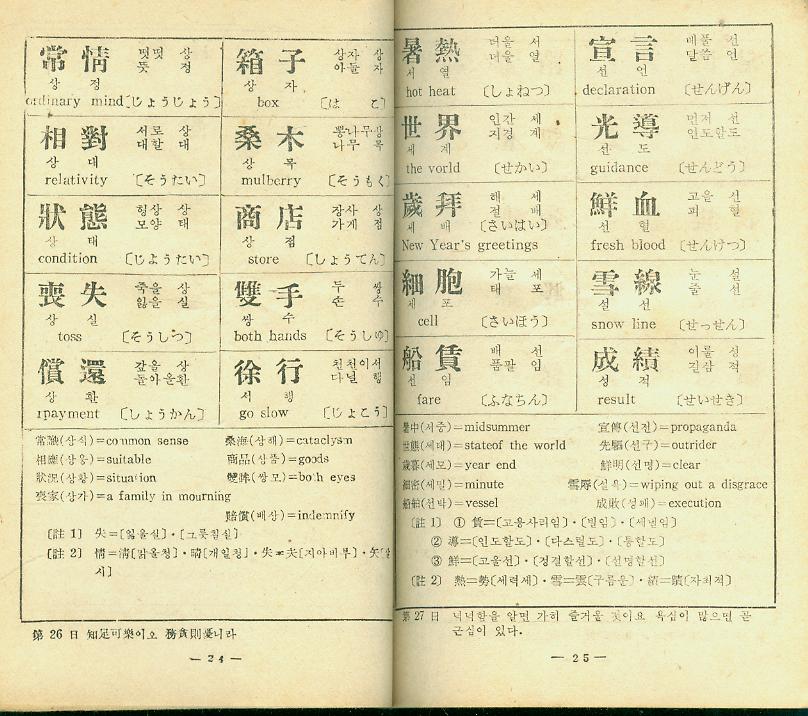 常情 떳떳 상
뜻 정
상 정
ordinary mind〔じょうじょう〕
箱子 상자 상
아들 자
상 자
box 〔はこ〕
相對 서로 상
대할 대
상 대
relativity 〔そうたい〕
桑木 뽕나무상
나무 목
상 목
mulberry 〔そうもく〕
狀態 형상 상
모양 태
상 태
condition 〔じようたい〕
商店 장사 상
가게 점
상 점
store 〔しょうてん〕
喪失 죽을 상
잃을 실
상 실
toss 〔そうしつ〕
雙手 두 쌍
손 수
쌍 수
both hands 〔そうしゆ〕
償還 갚을 상
돌아올환
상 환
payment 〔しょうかん〕
徐行 천천이서
다닐 행
서 행
go slow 〔じょこう〕
常識(상식)=common sense 桑海(상해)=cataclysm
相應(상응)=suitable 商品(상품)=goods
狀況(상황)=situation 雙眸(쌍모)=both eyes
喪家(상가)=a family in mourning
賠償(배상)=indemnify
[註 1] 失=[잃을실]·[그릇칠실]
[註 2] 情=淸[맑을청]·晴[개일청]·失=夫[지아비부]·矢
시]
第 26 日 知足可樂이오 務貪則憂니라
— 24 —
暑熱 더울 서
더울 열
서 열
hot heat 〔しょねつ〕
宣言 베풀 선
말씀 언
선 언
declaration 〔せんげん〕
世界 인간 세
지경 계
세 계
the vorld 〔せかい〕
光導 먼저 선
인도할도
선 도
guidance 〔せんどう〕
歲拜 해 세
절 배
세 배 〔さいはい〕
New Year's greetings
鮮血 고을 선
피 혈
선 혈
fresh blood 〔せんけつ〕
細胞 가늘 세
태 포
세 포
cell 〔さいほう〕
雪線 눈 설
줄 선
설 선
snow line 〔せっせん〕
船賃 배 선
품팔 임
선 임
fare 〔ふなちん〕
成績 이룰 성
길삼 적
성 적
result 〔せいせき〕
暑中(서중)=midsummer 宣傳(선전)=propaganda
世態(세태)=stateof the world 先驅(선구)=outrider
歲暮(세모)=year end 鮮明(선명)=clear
細密(세밀)=minute 雪辱(설욕)=wiping out a disgrace
船舶(선박)=vessel 成敗(성패)=execution
[註 1] ① 賃=[고용사리임]·[빌임]·[세낼임]
② 導=[인도할도]·[다스릴도]·[통할도]
③ 鮮=[고울선]·[정결할선]·[선명할선]
[註 2] 熱=勢[세력세]·雪=雲[구름운]·績=蹟[자최적]
第 27 日 넉넉함을 알면 가히 즐거울 것이요 욕심이 많으면 곧
근심이 있다.
— 25 —